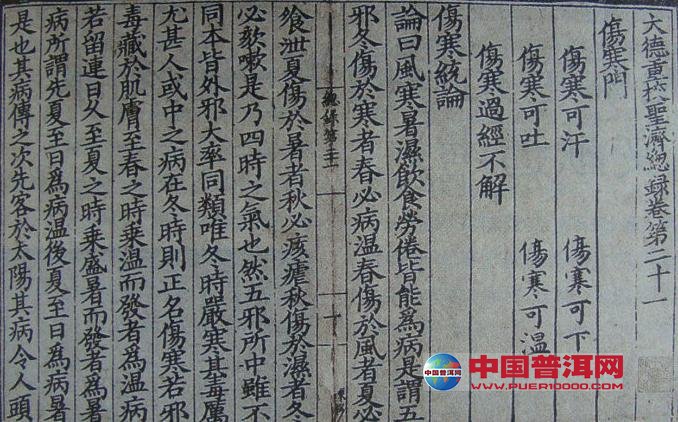 大德重挍聖濟總録卷第二十一
傷寒門
傷寒可汗 傷寒可下
傷寒可吐 傷寒可溫
傷寒過經不解
傷寒統論
論曰風寒暑濕飲食勞倦皆能爲病是謂五
邪冬傷於寒者春必病温春傷於風者夏必
飧泄夏傷於暑者秋必痎瘧秋傷於濕者冬
必欬嗽是乃四時之氣也然五邪所中雖不
同本皆外邪大率同類唯冬時嚴寒其毒厲
尤甚人或中之病在冬時則正名傷寒若邪
毒藏於肌膚至春之時乘温而發者爲温病
若留連日久至夏之時乘盛暑而發者爲暑
病所謂先夏至日爲病温後夏至日爲病暑
是也其病傳之次先客於太陽其病令人頭
中国普洱网
WWW.PUER10000.COM